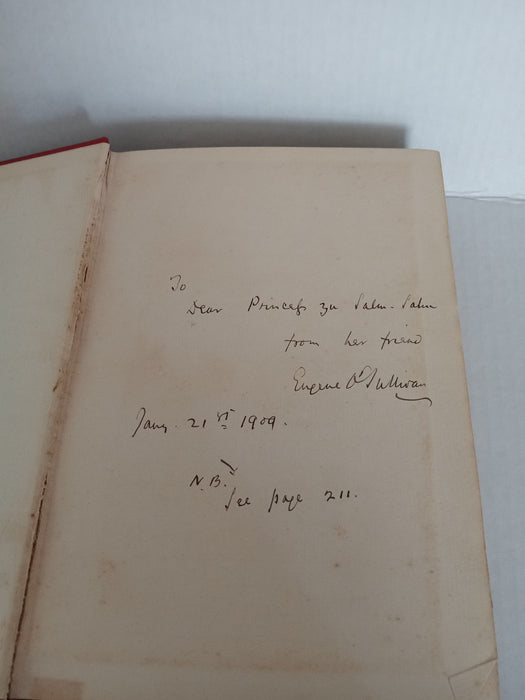 To
Dear Princess zu Salm-Salm
from her friend
Eugene O'Sullivan
Jany. 21st 1909.
N.B.
See page 211.